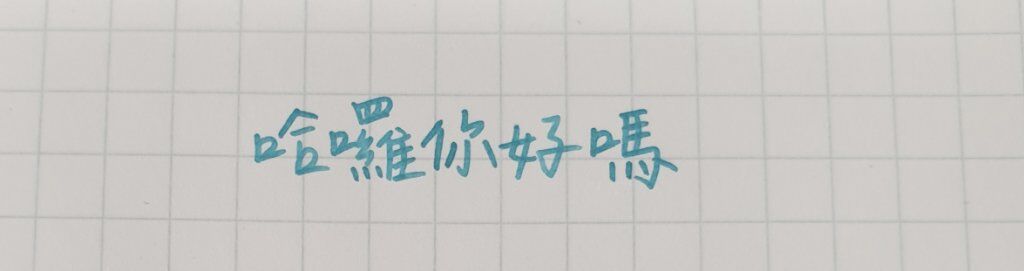 哈囉你好嗎